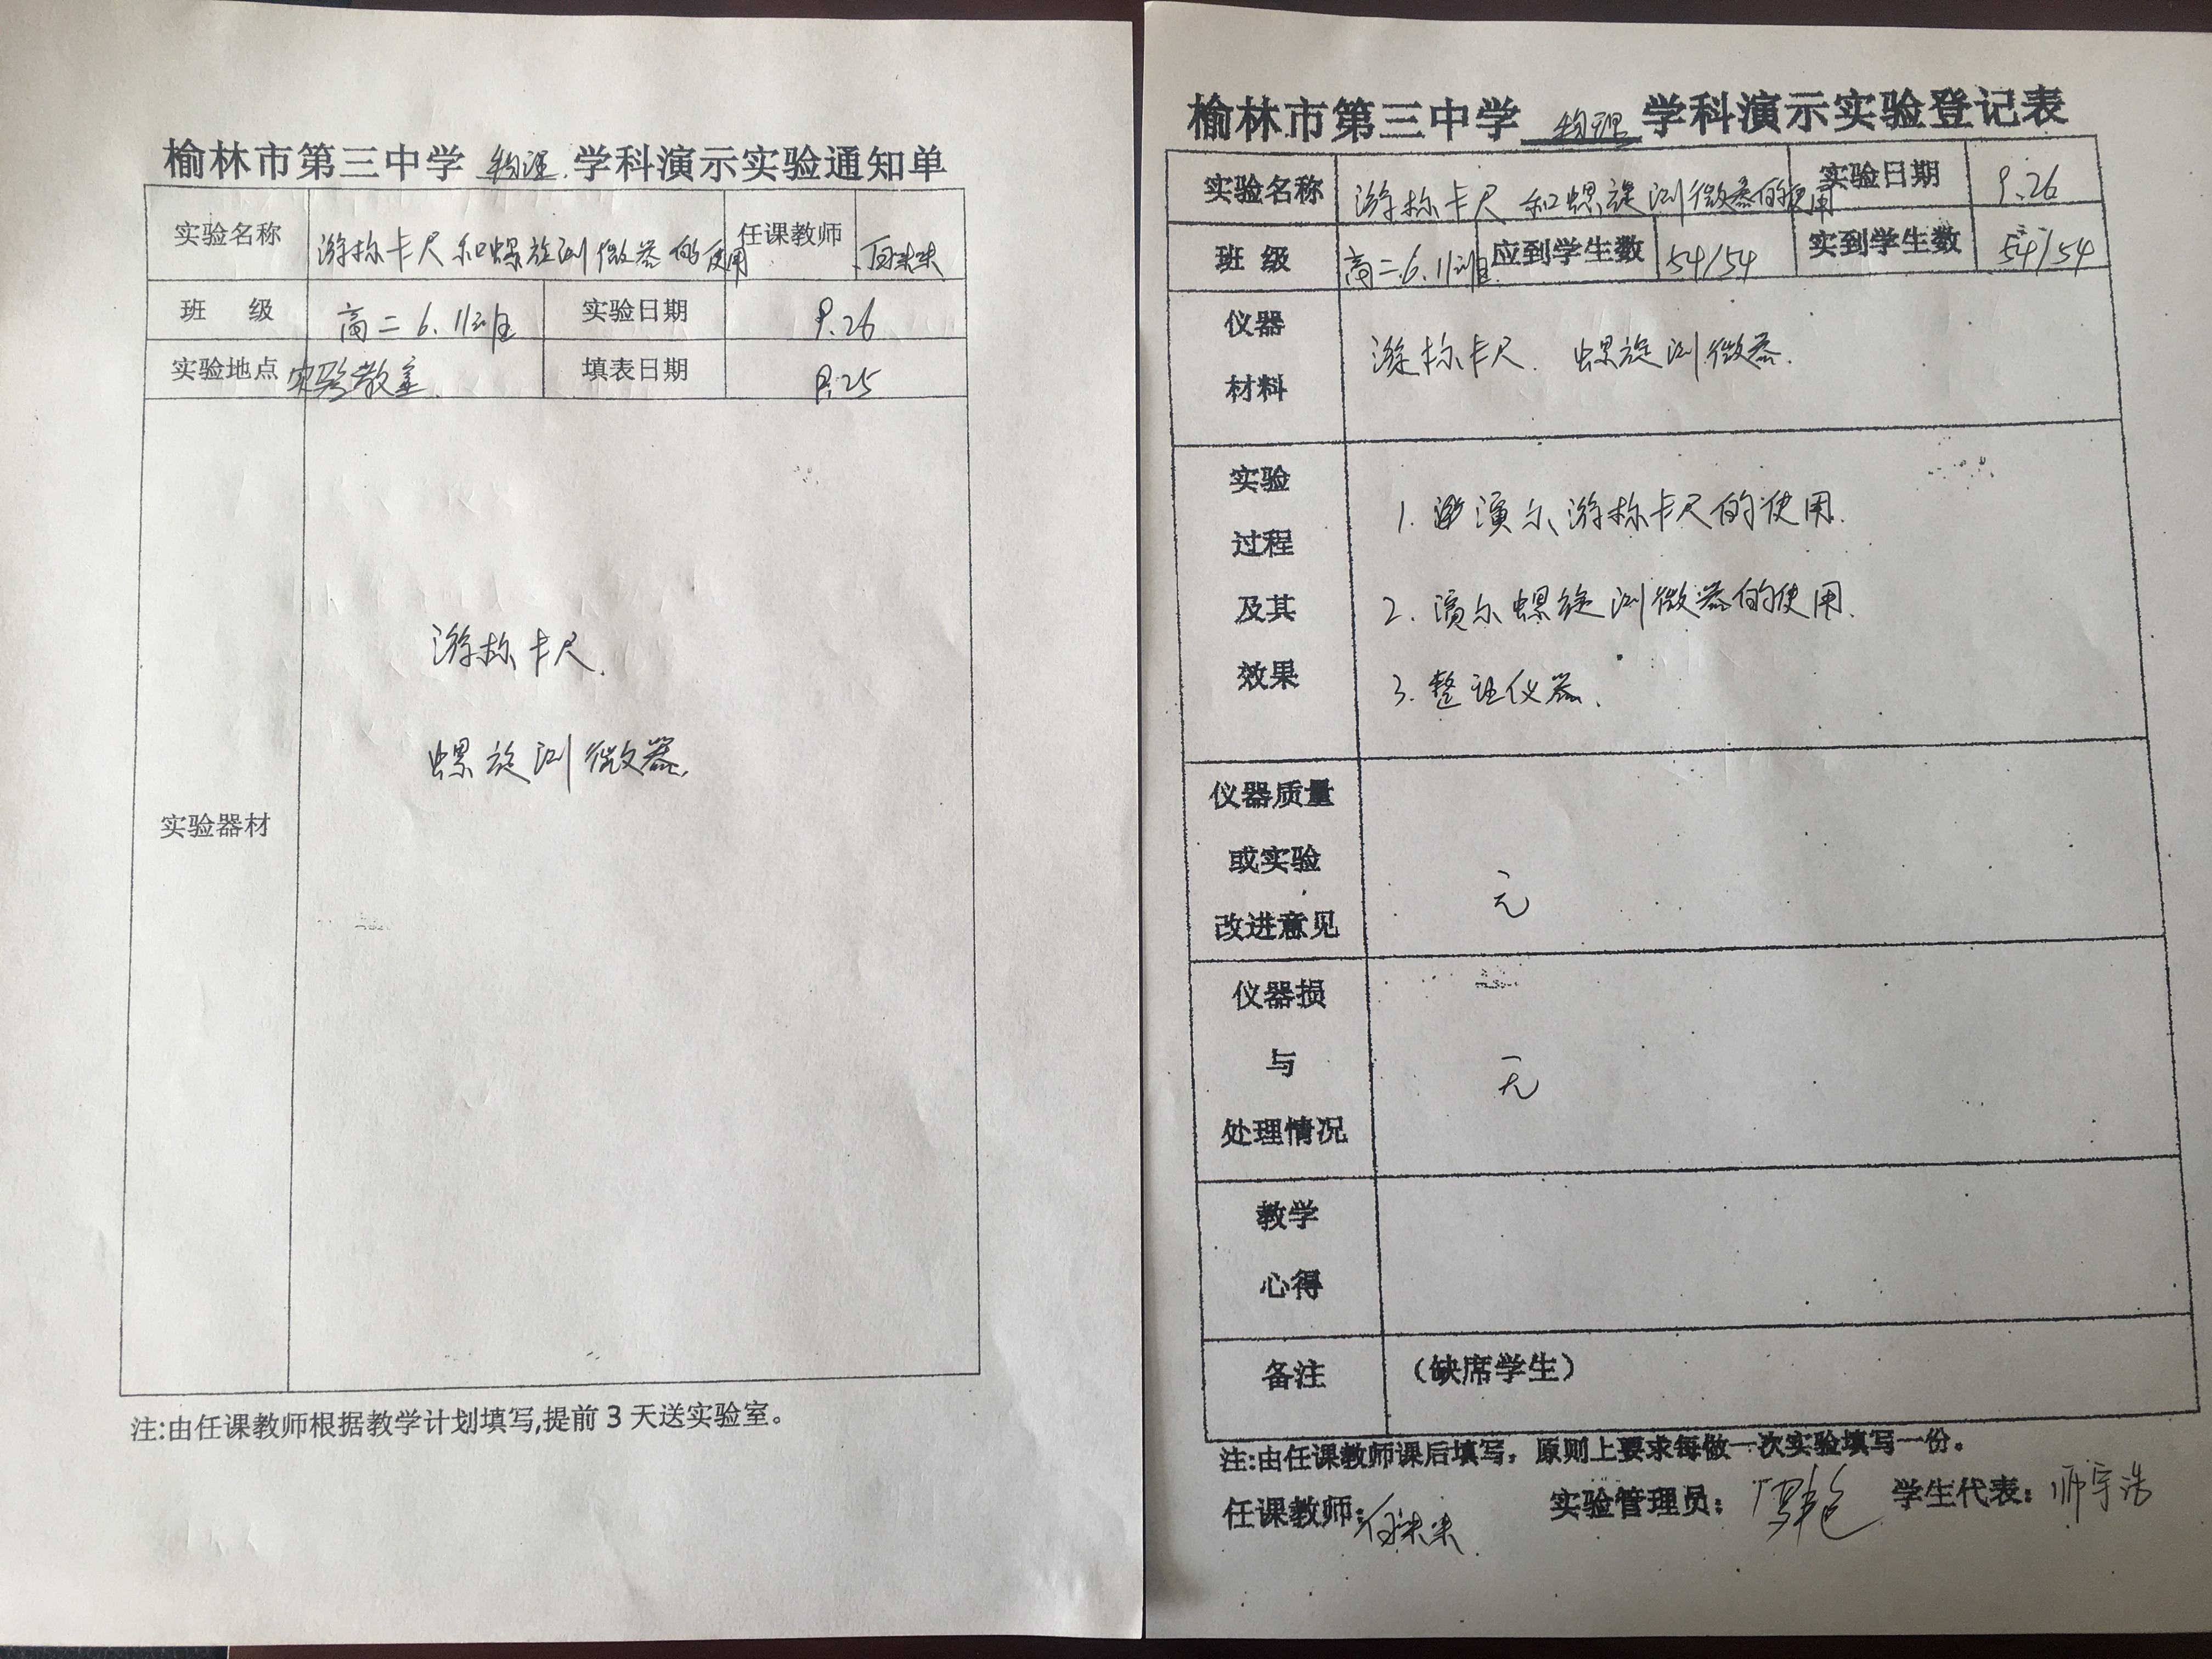 榆林市第三中学 物理 学科演示实验通知单
实验名称 游标卡尺和螺旋测微器的使用 任课教师
班 级 高二6.11班 实验日期 9.26
实验地点 实验教室 填表日期 9.25
实验器材
游标卡尺.
螺旋测微器.
注:由任课教师根据教学计划填写,提前3天送实验室。
榆林市第三中学 物理 学科演示实验登记表
实验名称 游标卡尺和螺旋测微器的使用 实验日期 9.26
班 级 高二6.11班 应到学生数 54/54 实到学生数 54/54
仪器
材料
游标卡尺. 螺旋测微器.
实验
过程
及其
效果
1. 演示游标卡尺的使用.
2. 演示螺旋测微器的使用.
3. 整理仪器.
仪器质量
或实验
改进意见
无
仪器损
与
处理情况
无
教学
心得
备注 (缺席学生)
注:由任课教师课后填写，原则上要求每做一次实验填写一份。
任课教师: 实验管理员: 学生代表: 师宇浩